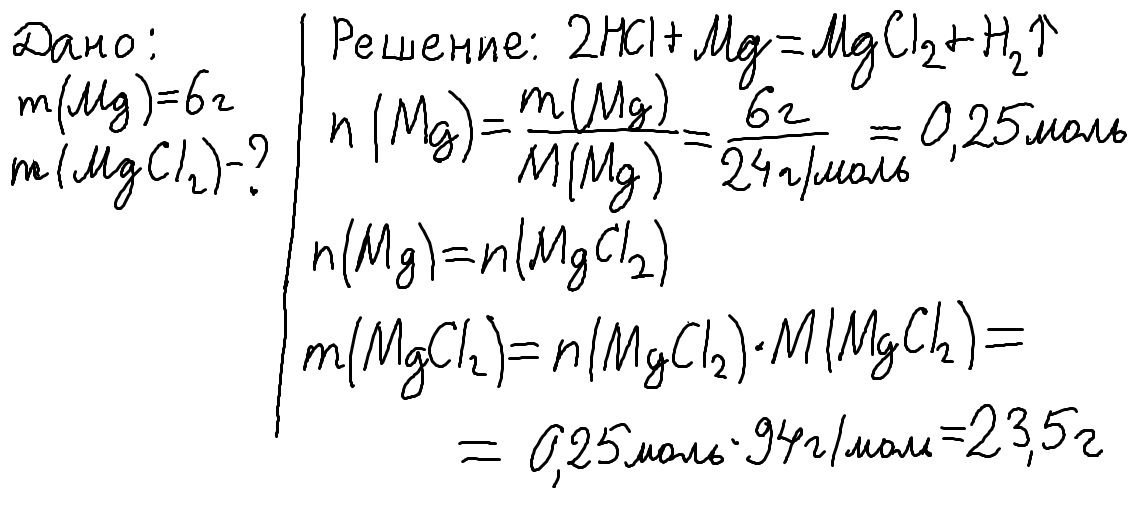 Дано:
m(Mg)=6г
m(MgCl₂)-?
Решение: 2HCl+Mg=MgCl₂+H₂↑
n(Mg)=m(Mg)/M(Mg)=6г/24г/моль=0,25моль
n(Mg)=n(MgCl₂)
m(MgCl₂)=n(MgCl₂)·M(MgCl₂)=
=0,25моль·94г/моль=23,5г